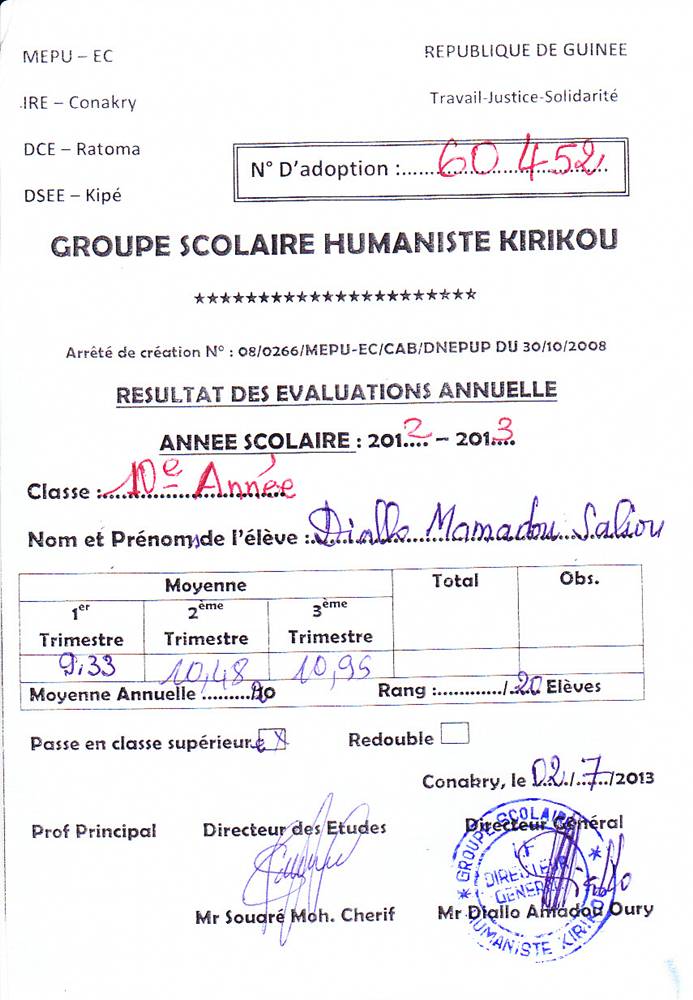 MEPU – EC
REPUBLIQUE DE GUINEE
IRE – Conakry
Travail-Justice-Solidarité
DCE – Ratoma
N° D'adoption :......60 452
DSEE – Kipé
GROUPE SCOLAIRE HUMANISTE KIRIKOU
**********************
Arrêté de création N° : 08/0266/MEPU-EC/CAB/DNEPUP DU 30/10/2008
RESULTAT DES EVALUATIONS ANNUELLE
ANNEE SCOLAIRE : 2012 – 2013
Classe : 10e Année
Nom et Prénoms de l'élève : Diallo Mamadou Saliou
Moyenne Total Obs.
1er Trimestre 2ème Trimestre 3ème Trimestre
9,33 10,48 10,95
Moyenne Annuelle ......... Rang :............/.20 Elèves
Passe en classe supérieure X Redouble
Conakry, le 02/7/2013
Prof Principal Directeur des Etudes Directeur Général
GROUPE SCOLAIRE
LE
DIRECTEUR
GENERAL
HUMANISTE KIRIKOU
Mr Souaré Moh. Cherif Mr Diallo Amadou Oury